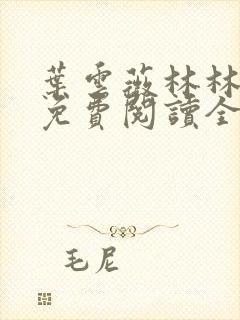 葉雲薇林林
免費閱讀全
毛尼